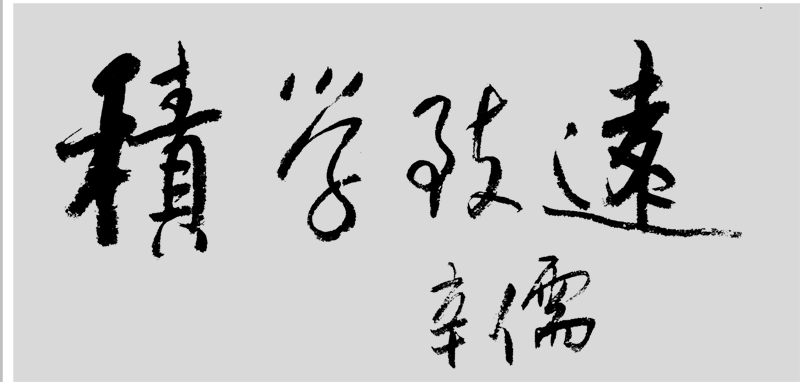 積学致遠
辛儒